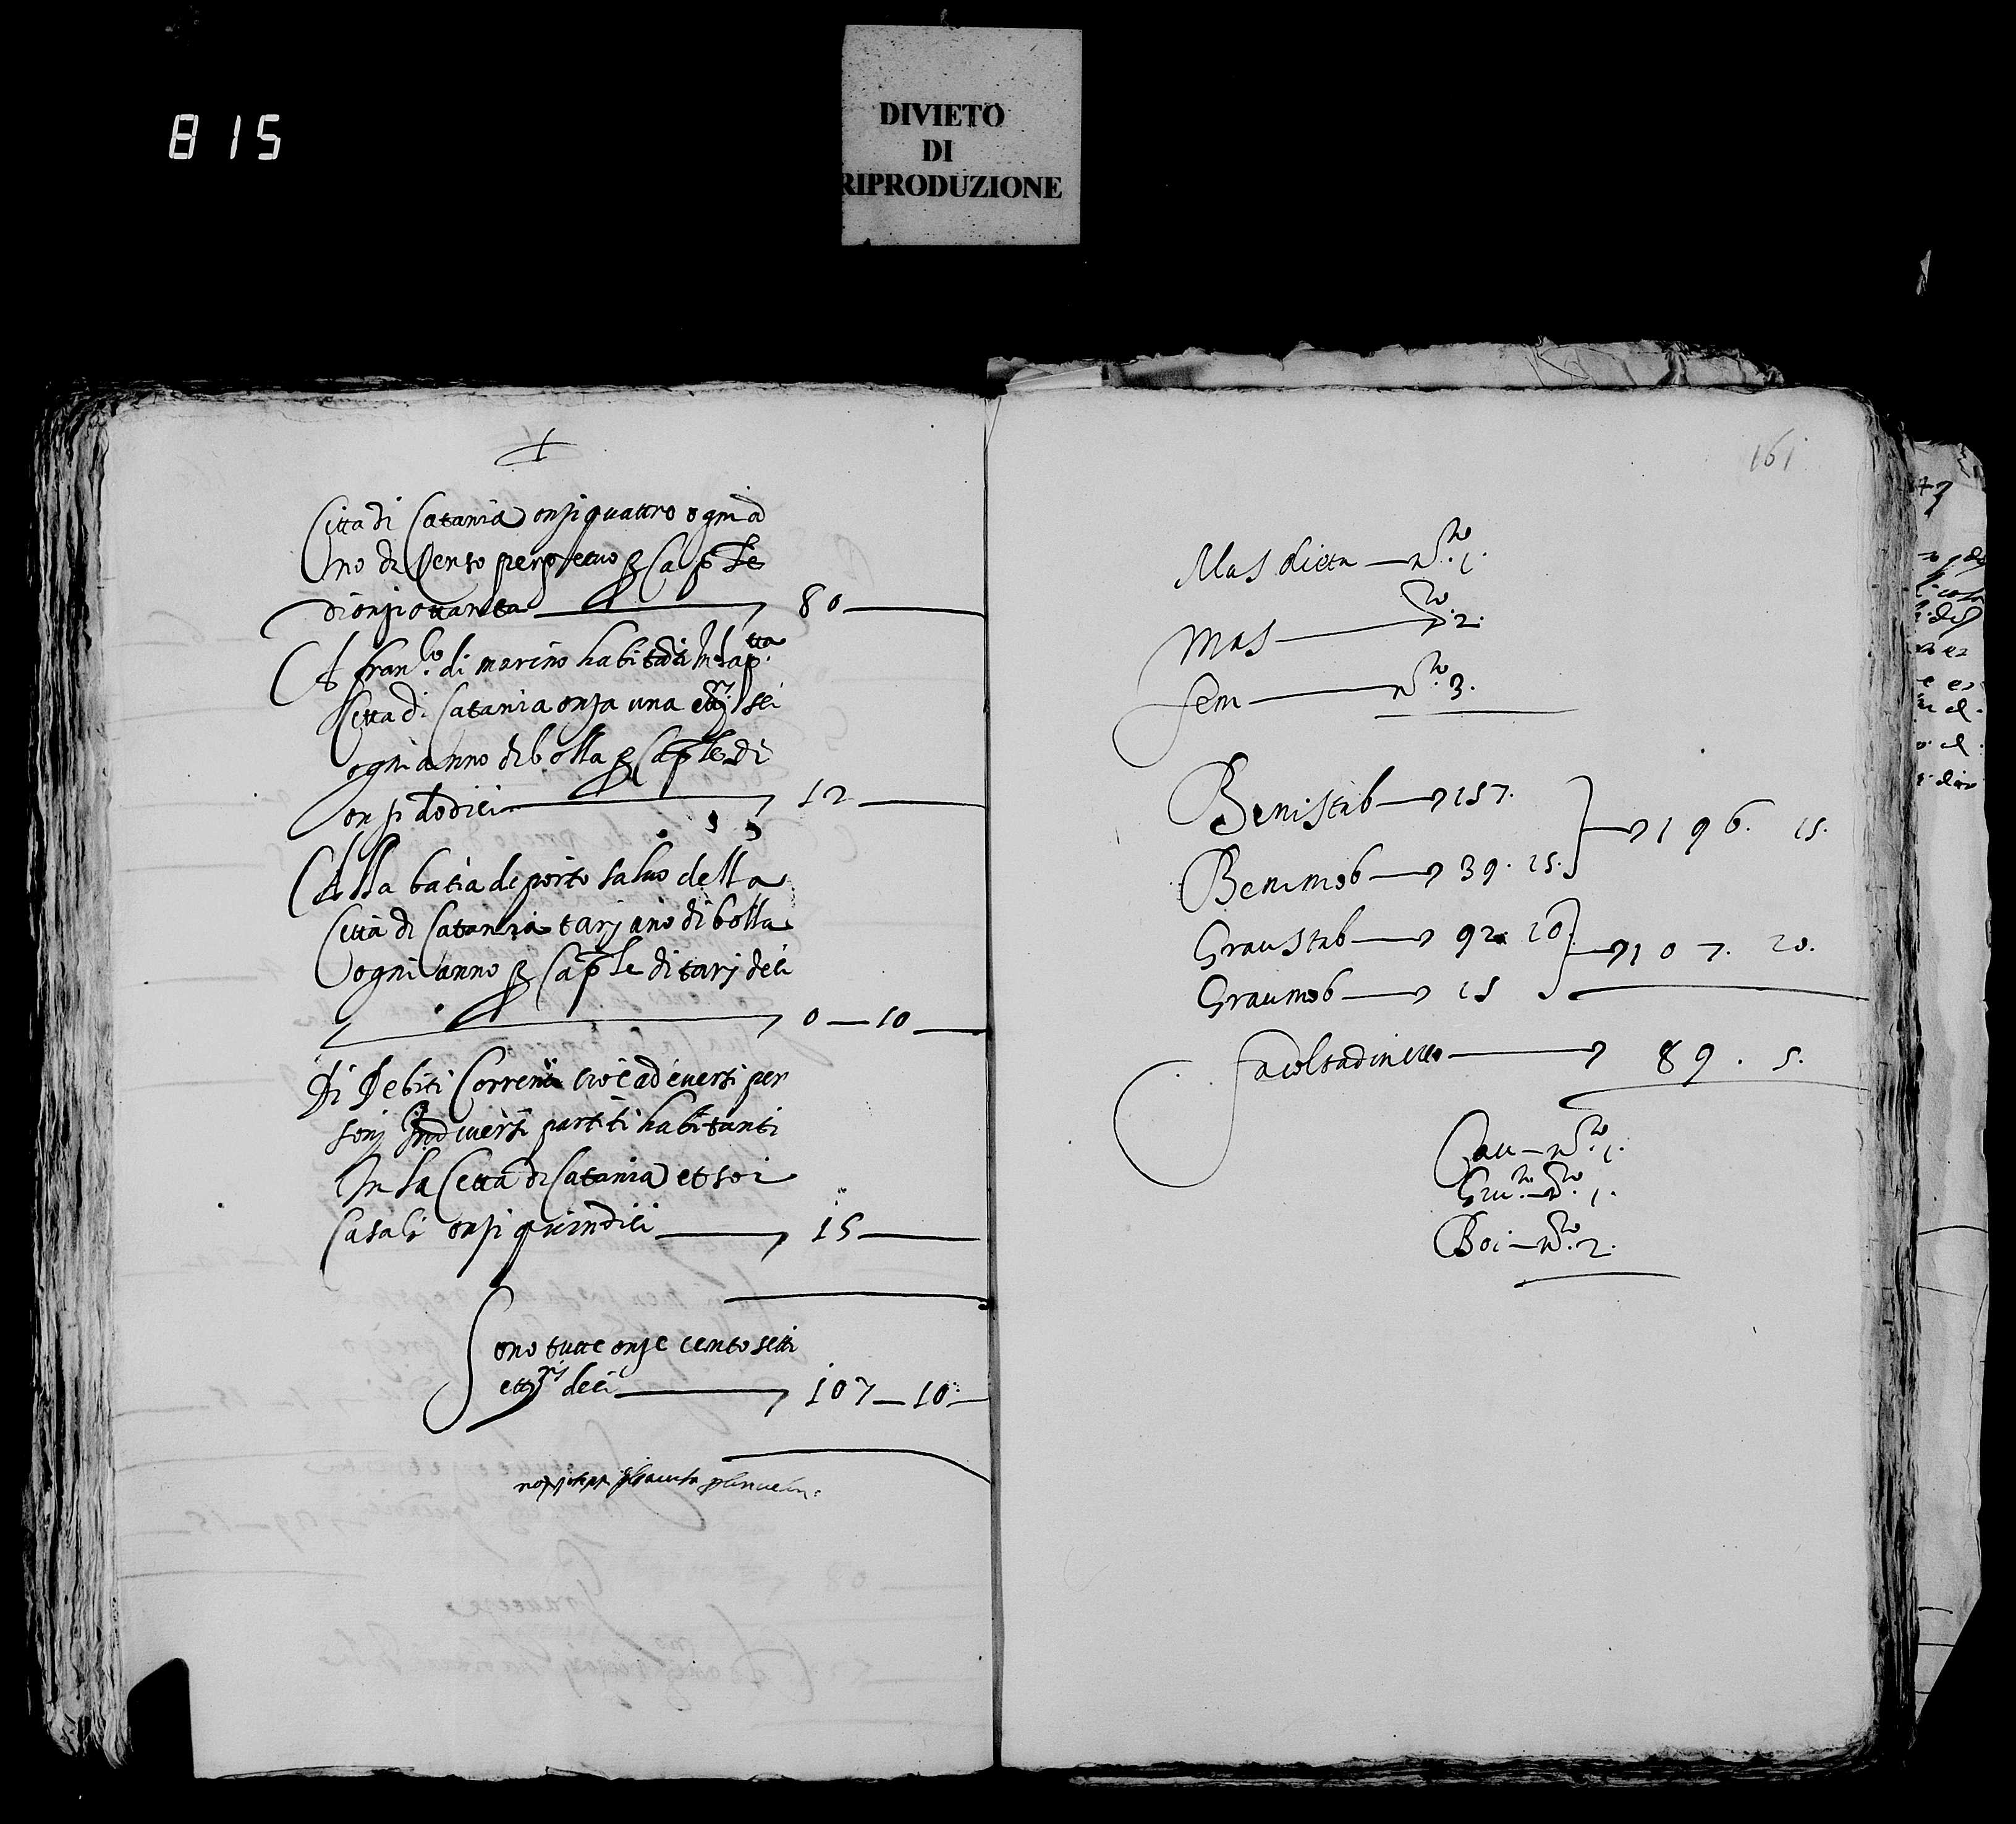 815
DIVIETO
DI
RIPRODUZIONE
Citta di Catania onzi quattro ogni a
no di Censo perpetuo p Cap.le
di onzi ottanta 80
A fran.co di marino habitati In la p.tta
Citta di Catania onza una ett.rj sei
ogni anno di bolla p Cap.le di
onzi dodici 12
Alla batia di porto salvo della
Citta di Catania tarj uno di bolla
ogni anno p Cap.le di tarj deci
0 — 10
Di Debiti Correnti cioè ad eversi per
sonj In diversi partiti habitanti
In la Citta di Catania et soi
Casali onzi quindici 15
Sono tutte onze cento setti
ett.rj deci 107 — 10
161
Mas di età — n.ro 1.
Mas — n.ro 2.
fem — n.ro 3.
Beni stab — 157.
196. 15.
Beni mob — 39. 15.
Grav stab — 92. 20.
107. 20.
Grav mob — 15
facolta di netto — 89. 5.
Cav — n.ro 1.
Giu.te n.ro 1.
Boi — n.ro 2.